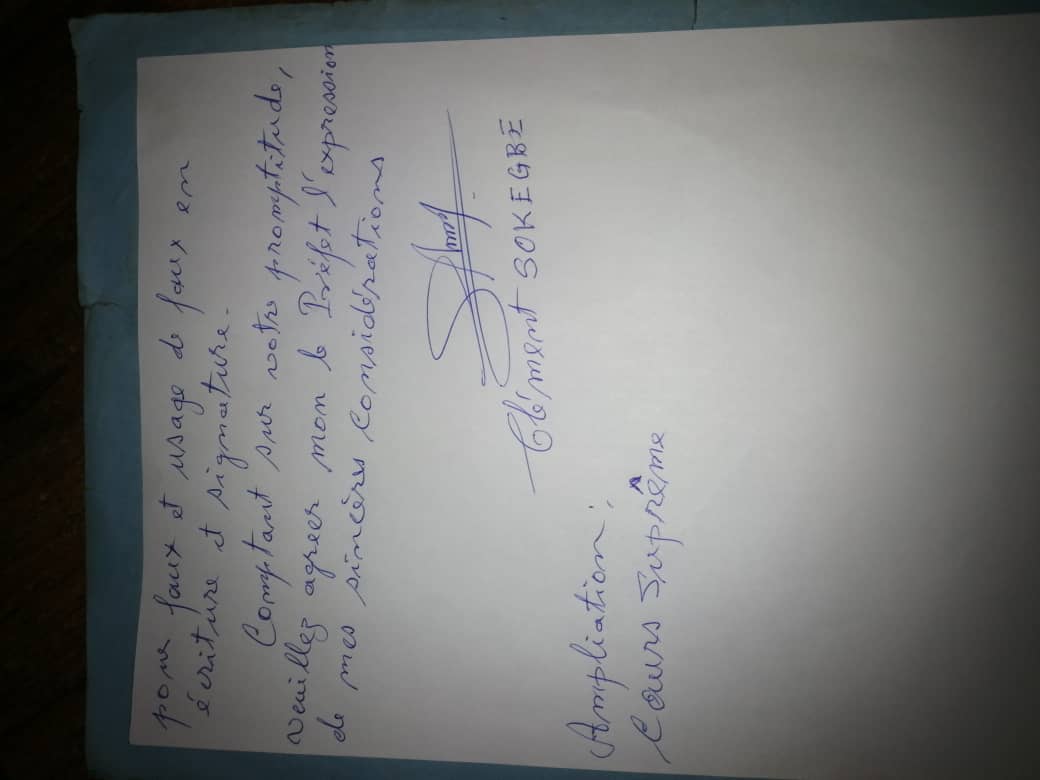 pour faux et usage de faux en
écriture et signature.
Comptant sur votre promptitude,
veuillez agréer mon le Préfet l'expression
de mes sincères considérations
Clément SOKEGBE
Ampliation :
Cours Suprême